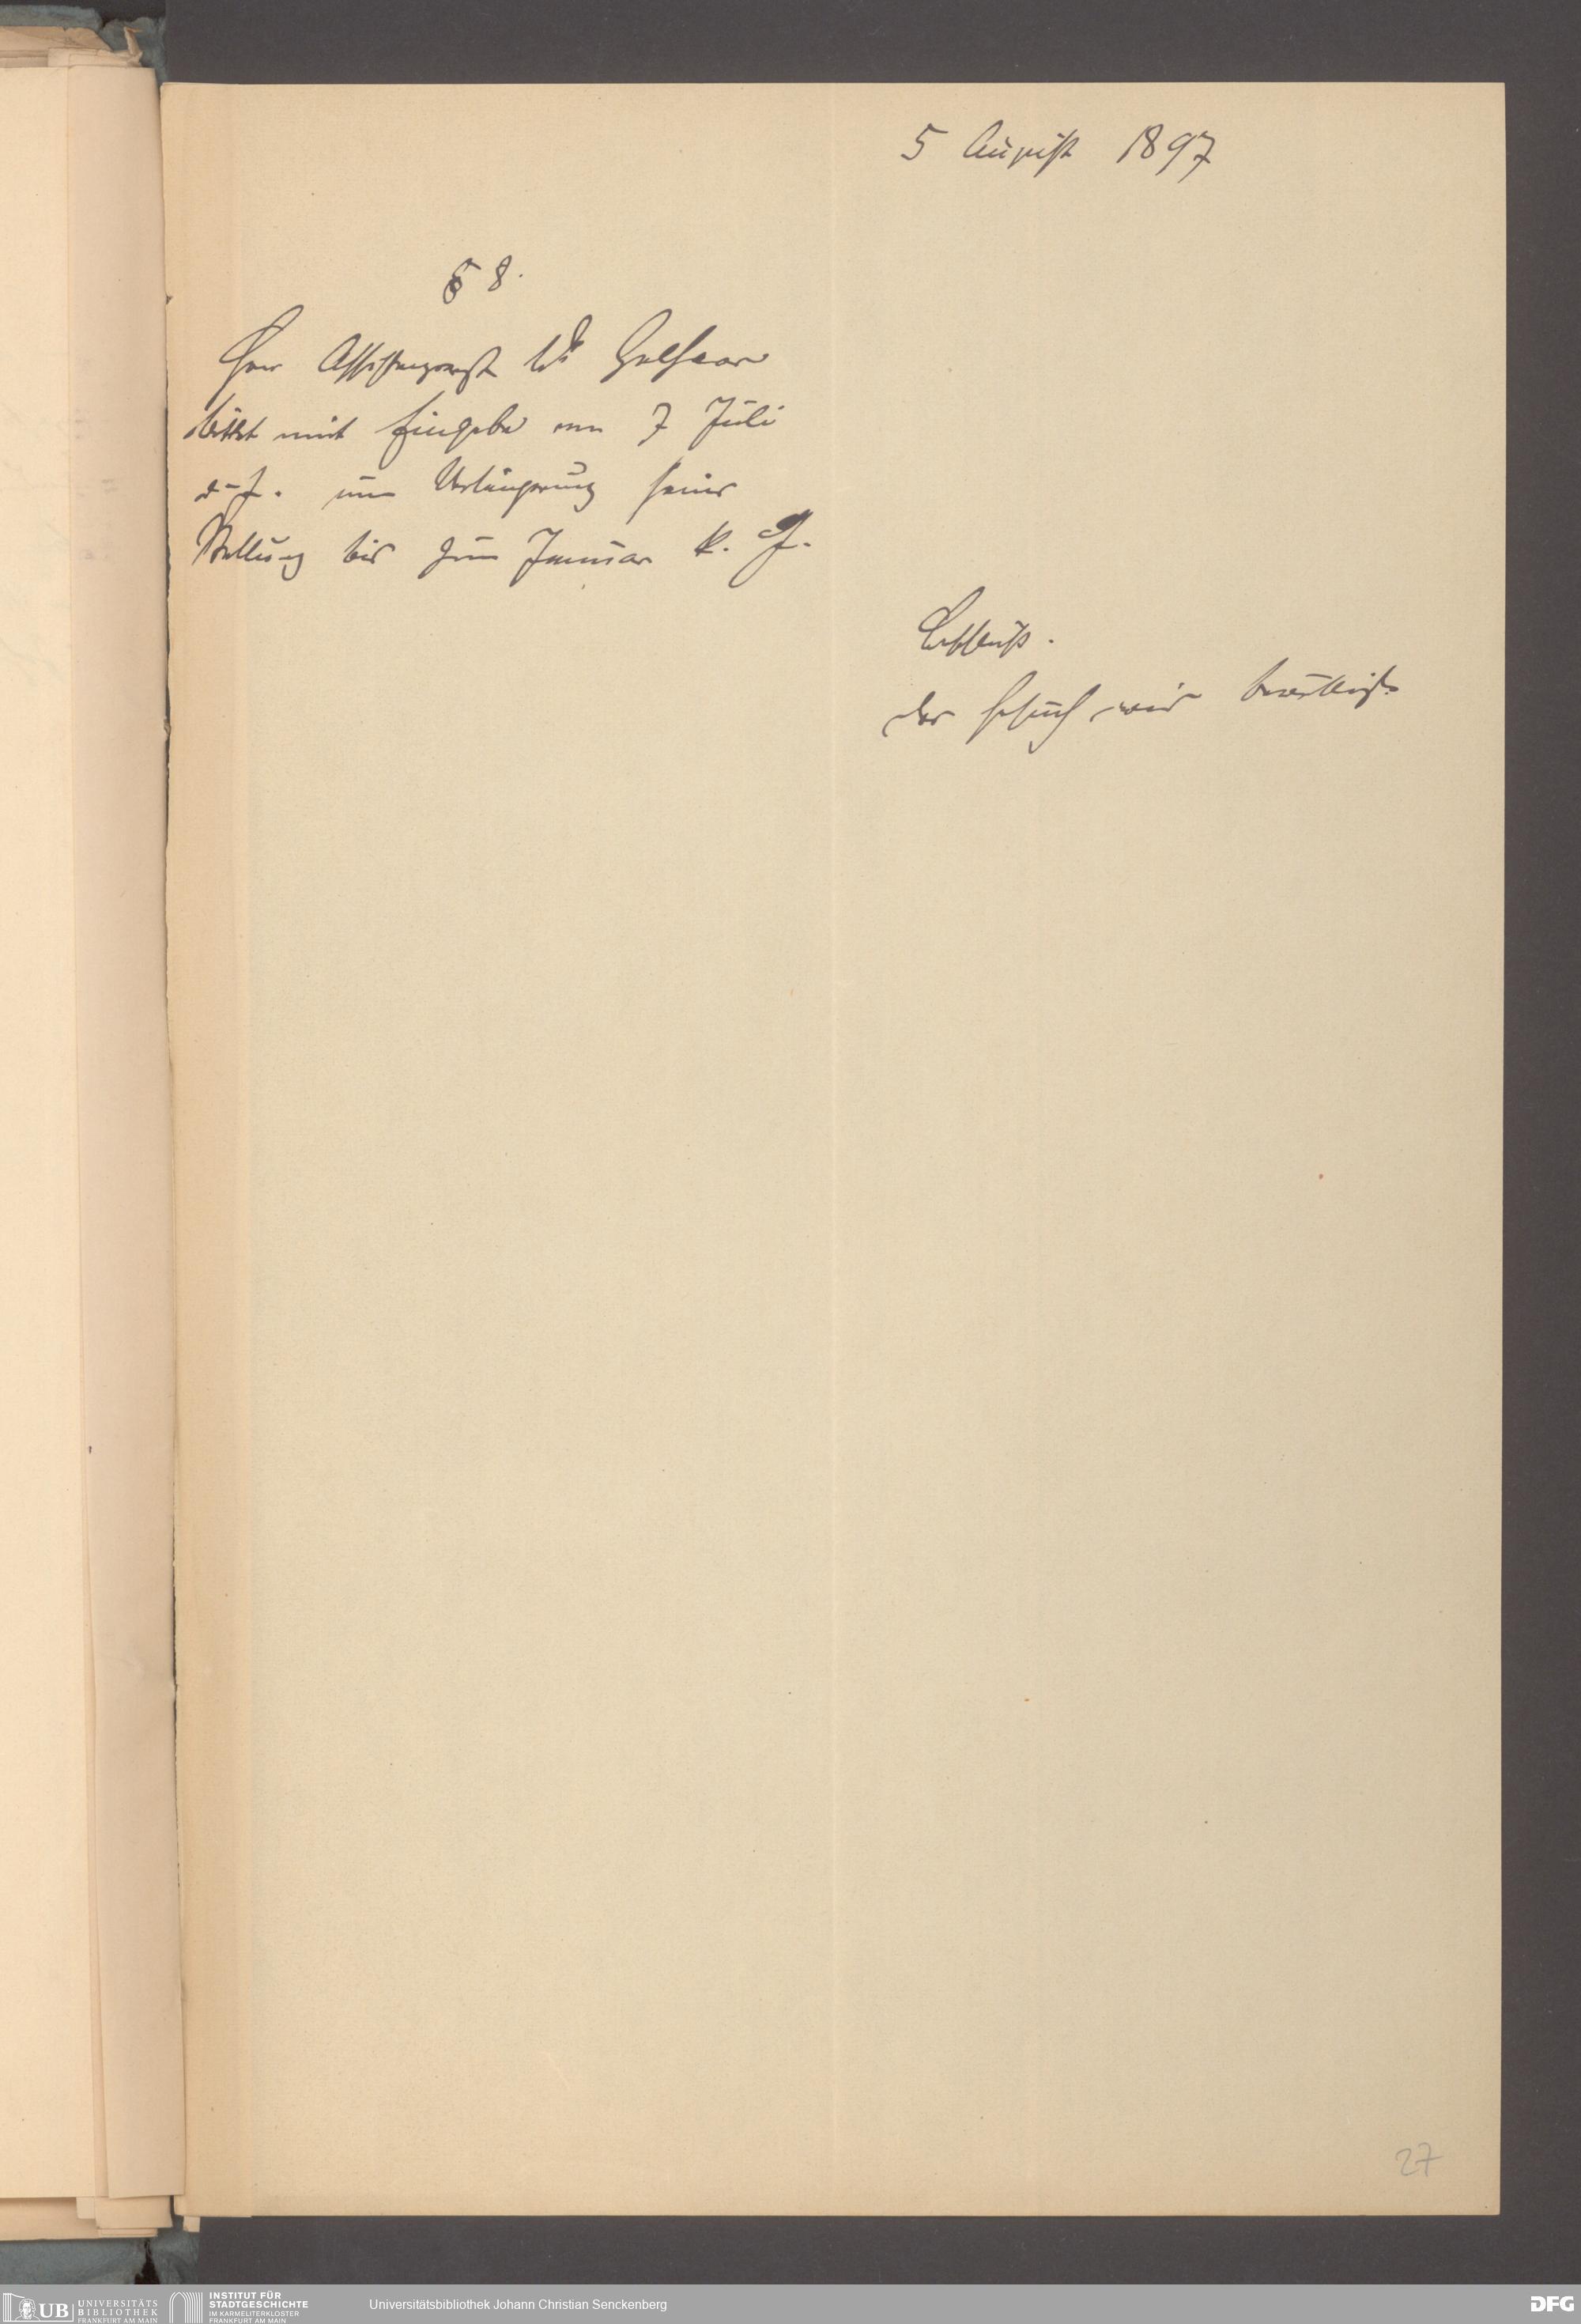 5 August 1897
§ 8.
Herr Assistenzarzt Dr
bittet mit Eingabe vom 7 Juli
d. J. um Verlängerung seiner
Stellung bis zum Januar k. J.
Beschluß.
Das Gesuch wird bewilligt.
27
UB UNIVERSITÄTS BIBLIOTHEK FRANKFURT AM MAIN
INSTITUT FÜR STADTGESCHICHTE IM KARMELITERKLOSTER FRANKFURT AM MAIN
Universitätsbibliothek Johann Christian Senckenberg
DFG